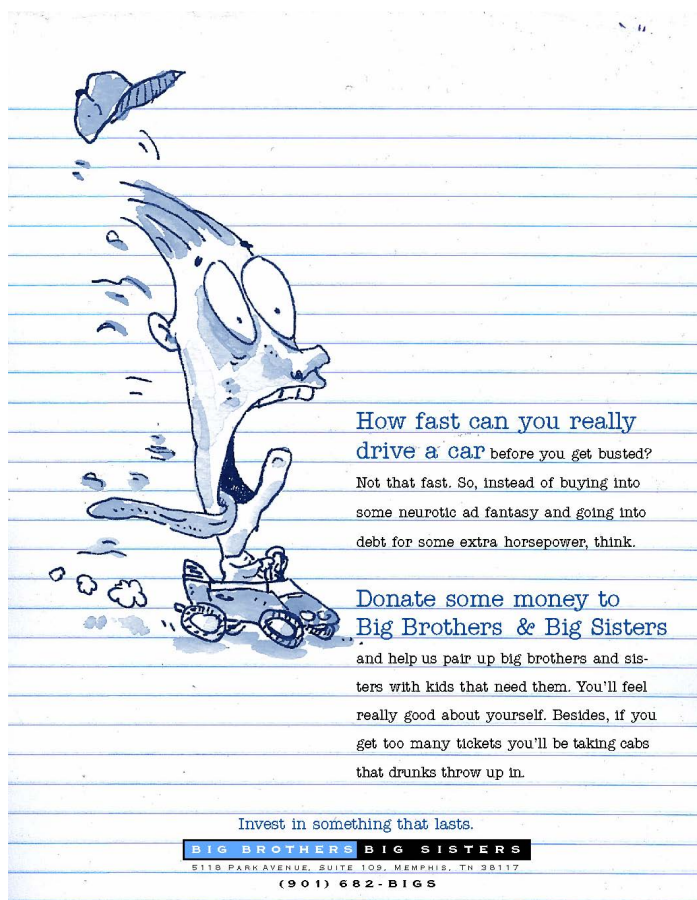 How fast can you really
drive a car before you get busted?
Not that fast. So, instead of buying into
some neurotic ad fantasy and going into
debt for some extra horsepower, think.
Donate some money to
Big Brothers & Big Sisters
and help us pair up big brothers and sis-
ters with kids that need them. You'll feel
really good about yourself. Besides, if you
get too many tickets you'll be taking cabs
that drunks throw up in.
Invest in something that lasts.
BIG BROTHERS BIG SISTERS
5118 PARK AVENUE, SUITE 109, MEMPHIS, TN 38117
(901) 682-BIGS